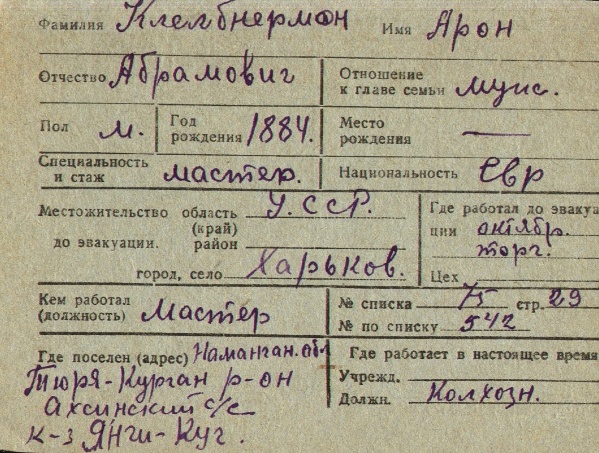 Фамилия Клембнермон Имя Арон
Отчество Абрамович Отношение к главе семьи муж.
Пол м. Год рождения 1884. Место рождения —
Специальность и стаж мастер. Национальность Евр
Местожительство область (край) У.ССР. Где работал до эвакуа
до эвакуации. район ции октябр.
торг.
город, село Харьков. Цех
Кем работал (должность) Мастер № списка 75 стр. 29
№ по списку 542
Где поселен (адрес) Наманган. обл Где работает в настоящее время
Тюря-Курган р-он Учрежд.
Ахсинский с/с Должн. Колхозн.
к-з Янги-Куч.